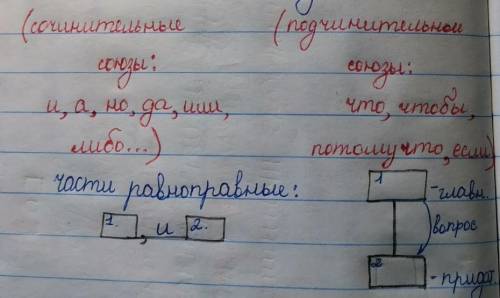 (сочинительные (подчинительные
союзы: союзы:
и, а, но, да, или, что, чтобы,
либо...) потому что, если)
части равноправные: 1 -главн.
1. , и 2. вопрос
2 -придат.